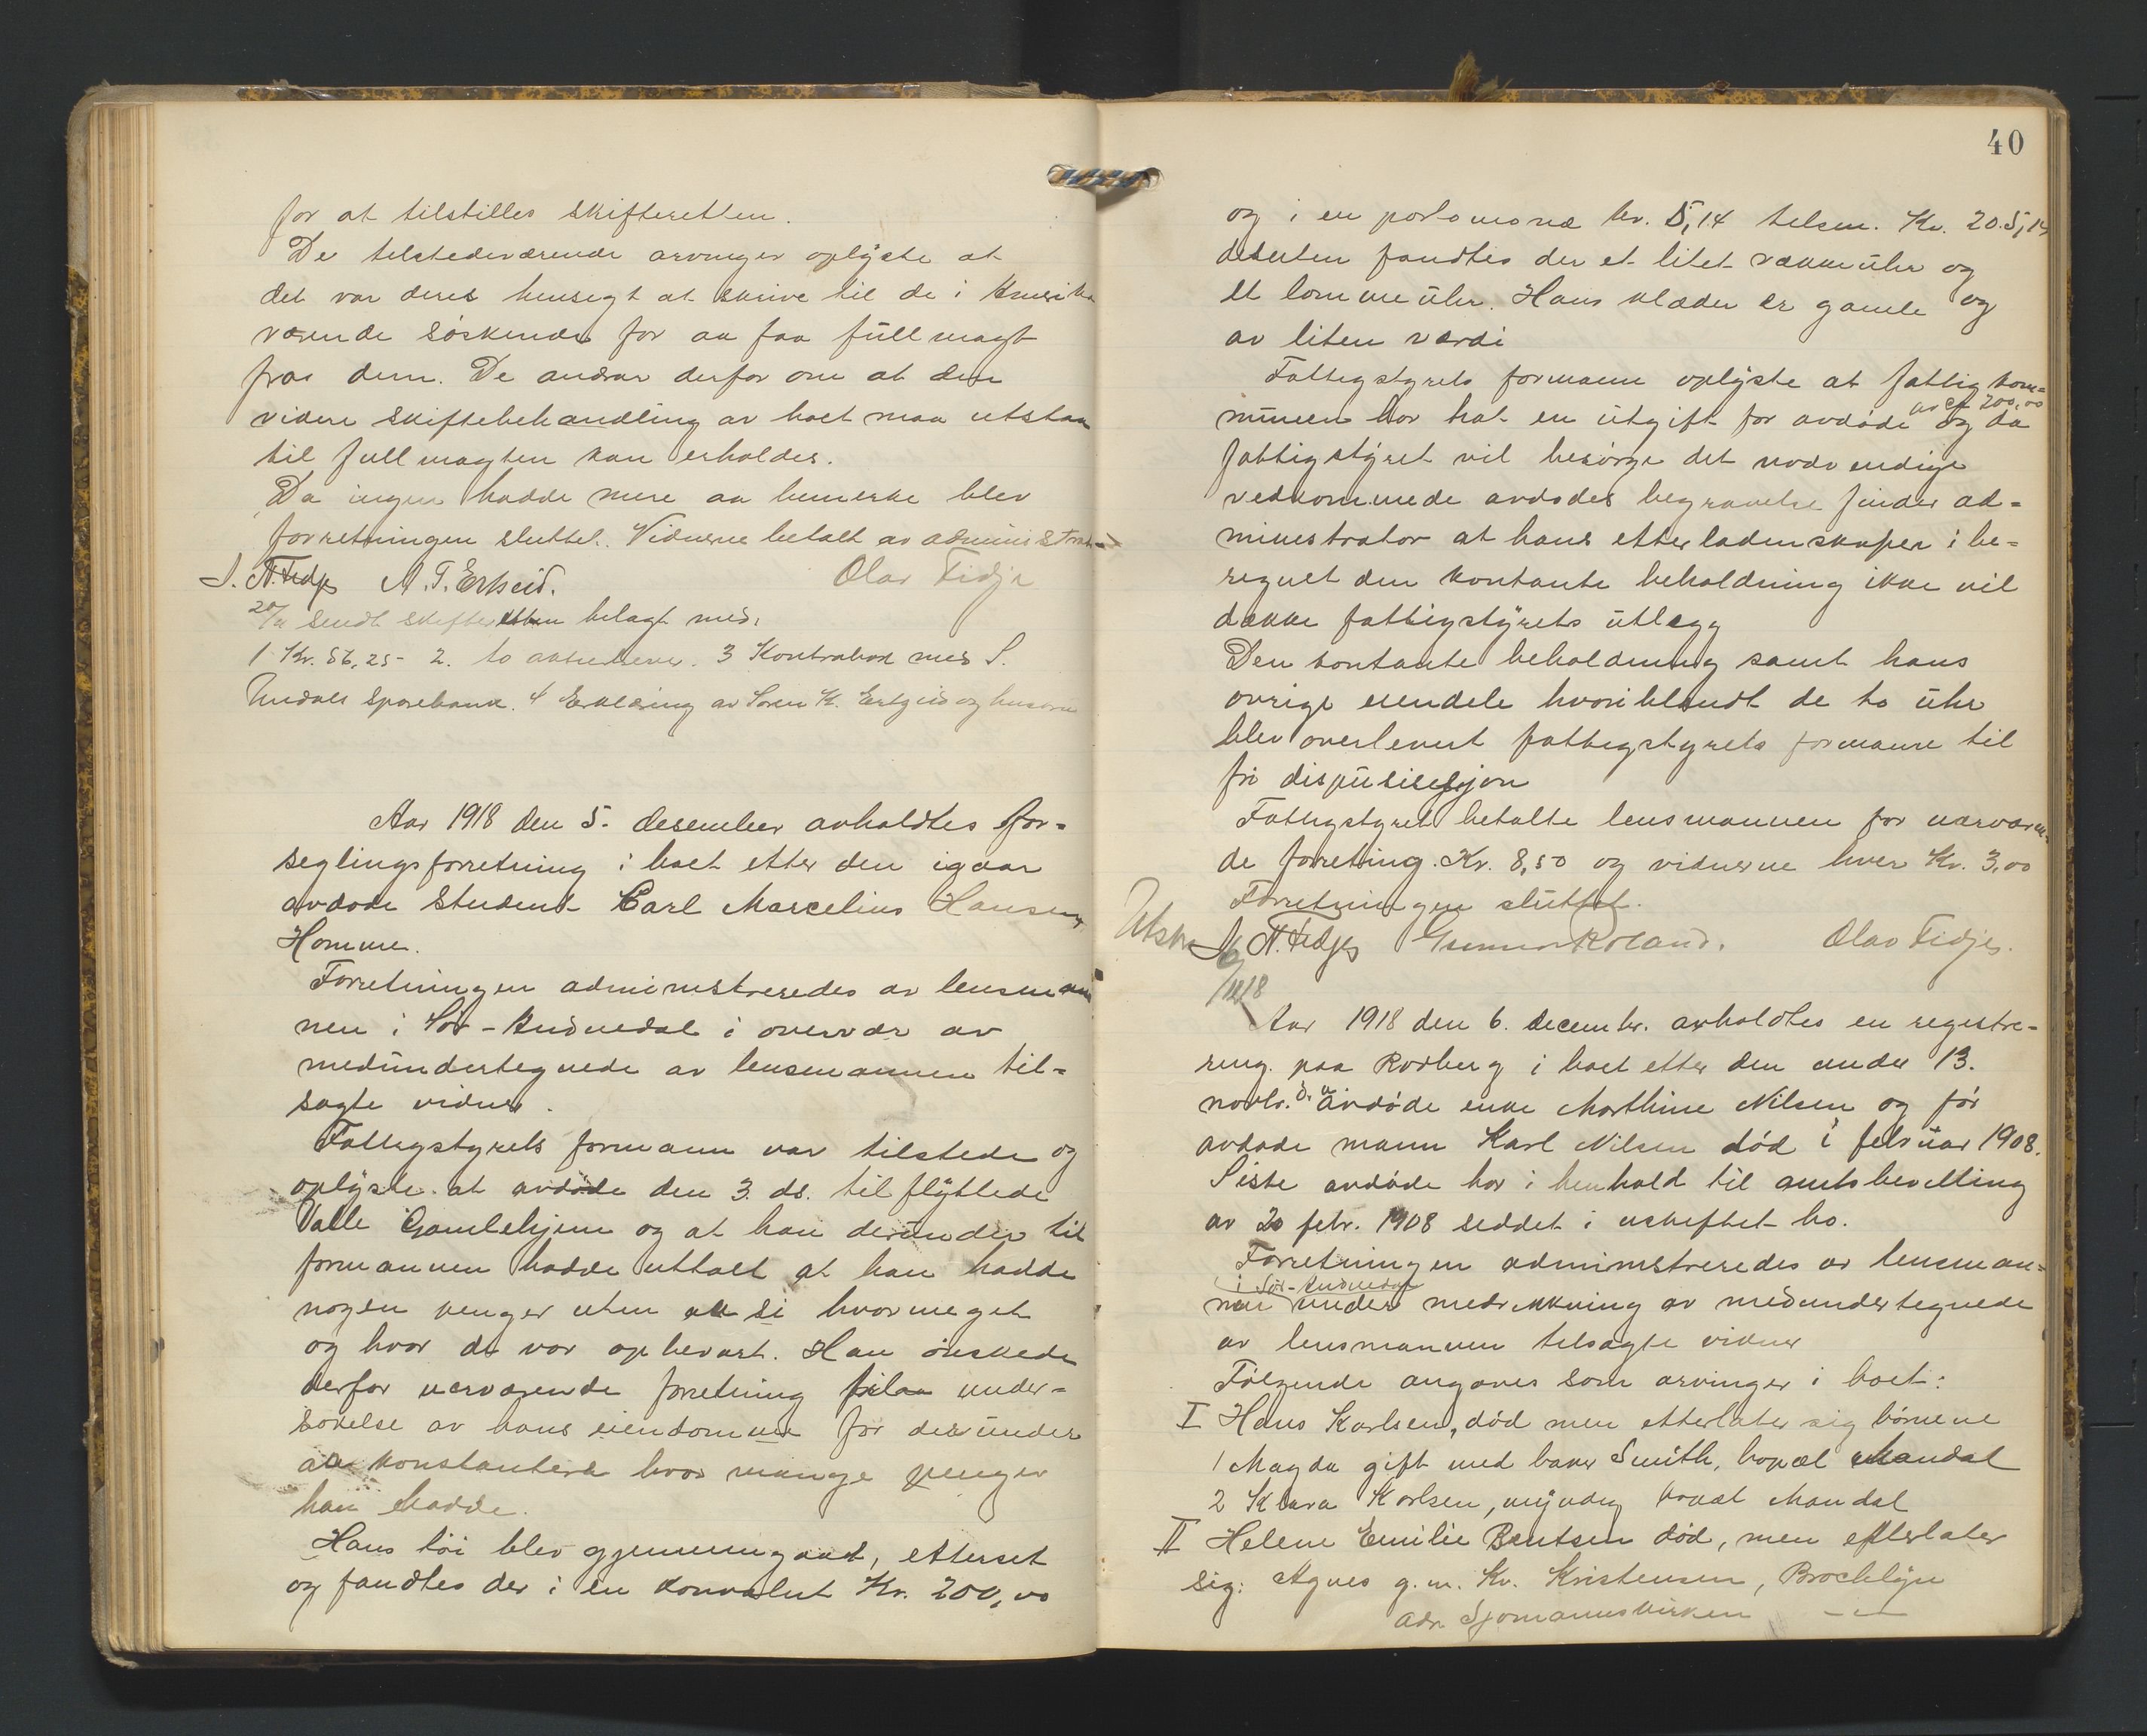 for at tilstilles skifteretten.
De tilstedeværende arvinger oplyste at
det var deres hensigt at skrive til de i Amerika
værende søskende for aa faa fullmagt
fraa dem. De andrar derfor om at den
videre skiftebehandling av boet maa utstaa
til fullmagten kan erholdes.
Da ingen hadde mere aa bemerke blev
forretningen sluttet. Vidnerne betalt av administrator
S. N. Fidje A. T. Ertseid. Olav Fidje
sendt skifteretten belagt med:
1 Kr. 56,25 - 2. to 3 Kontrabok med S.
Undals Sparebank. 4 Erklæring av Søren K. Ertzeid og hustru
Aar 1918 den 5. desember avholdtes for=
seglingsforretning i boet etter den igaar
avdøde Student Carl Marcelius Hansen
Homme.
Forretningen administreredes av lensman
nen i Sør-Audnedal i overvær av
medundertegnede av lensmannen til=
sagte vidner.
Fattigstyrets formann var tilstede og
oplyste at avdøde den 3. ds. tilflyttede
Valle Gamlehjem og at han derunder til
formannen hadde uttalt at han hadde
nogen penger uten aa si hvormeget
og hvor de var opbevart. Han ønskede
derfor nærværende forretning under=
søkelse av hans eiendomme for derunder
aa konstantere hvor mange penger
han hadde.
Hans tøi blev gjennemgaaet, etterset
og fandtes der i en konvolut Kr. 200,00
40
og i en portemonæ kr. 5,14 tilsm. Kr. 205,14
desuten fandtes der et litet vækkeuhr og
et lommeuhr. Hans klæder er gamle og
av liten værdi
Fattigstyrets formann oplyste at fattigkom=
munen har hat en utgift for avdøde av ca 200,00 og da
fattigstyret vil besørge det nødvendige
vedkommede avdødes begravelse finder ad=
ministrator at hans etterladenskaper i be=
regnet den kontante beholdning ikke vil
dække fattigstyrets utlægg
Den kontante beholdning samt hans
øvrige eiendele hvoriblandt de to uhr
blev overlevert fattigstyrets formann til
fri
Fattigstyret betalte lensmannen for nærværen=
de forretning Kr. 8,50 og vidnerne hver Kr. 3,00
Forretningen sluttet.
Utskr. S. N. Fidje Gunnar Roland. Olav Fidje.
6/12 18
Aar 1918 den 6. decembr. avholdtes en registre=
ring paa Rødberg i boet etter den under 13.
novbr. d. a. avdøde enke Marthine Nilsen og før
avdøde mann Karl Nilsen død i februar 1908.
Siste avdøde har i henhold til amtsbevilling
av 20 febr. 1908 siddet i uskiftet bo.
Forretningen administreredes av lensman=
nen i Sør-Audnedal under medvirkning av medundertegnede
av lensmannen tilsagte vidner
Følgende angaves som arvinger i boet:
I Hans Karlsen, død men etterlater sig børnene
1 Magda gift med baker Smith, bopæl Mandal
2 Klara Karlsen, myndig bopæl Mandal
II Helene Emilie Bentsen død, men efterlater
sig: Agnes g. m. Kr. Kristensen, Brocklyn
adr. Sjømannskirken